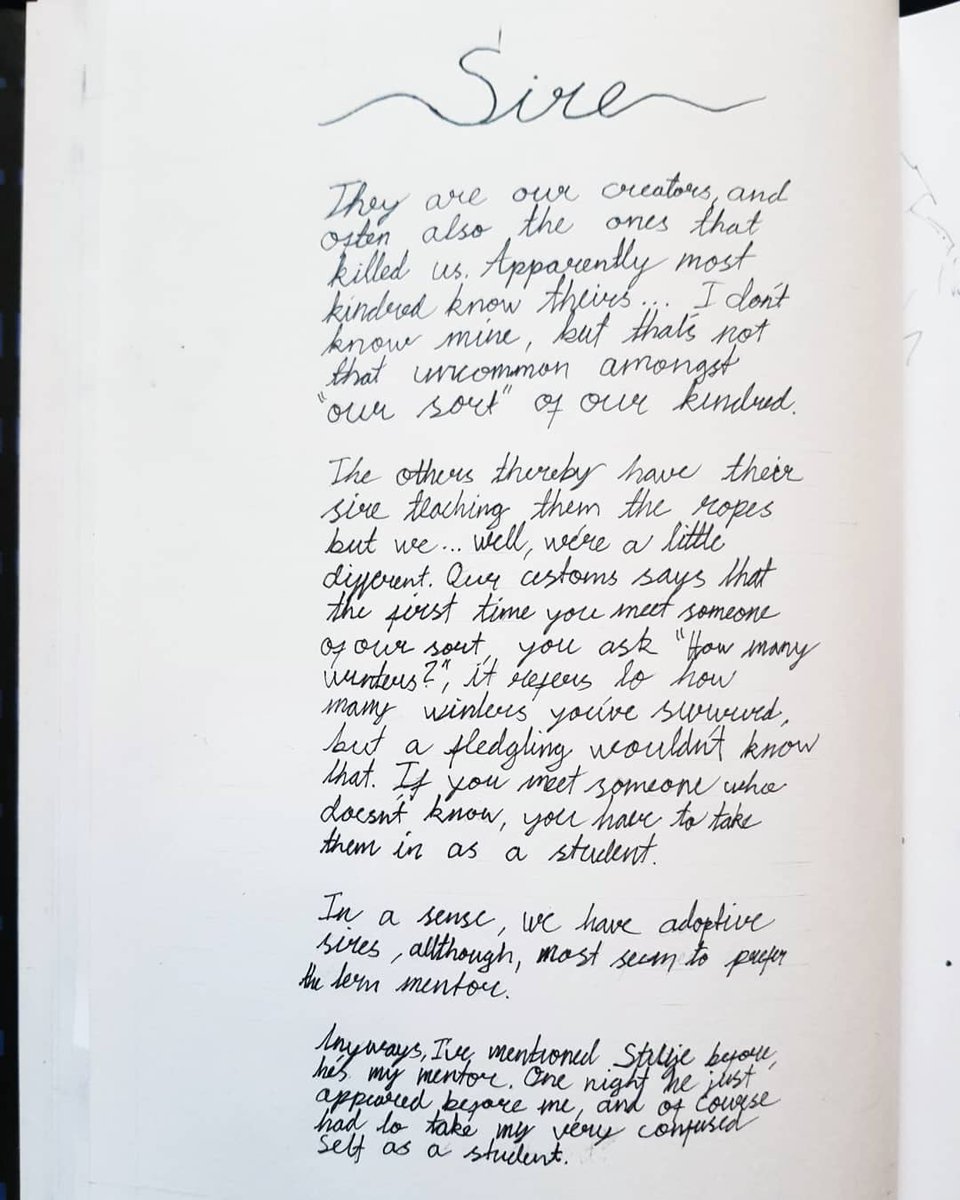 Sire
They are our creators, and
often also the ones that
killed us. Apparently most
kindred know theirs... I don't
know mine, but that's not
that uncommon amongst
"our sort" of our kindred.
The others thereby have their
sire teaching them the ropes
but we... well, we're a little
different. Our customs says that
the first time you meet someone
of our sort, you ask "How many
winters?", it refers to how
many winters you've survived,
but a fledgling wouldn't know
that. If you meet someone who
doesn't know, you have to take
them in as a student.
In a sense, we have adoptive
sires, allthough, most seem to prefer
the term mentor.
Anyways, I've mentioned before,
he's my mentor. One night he just
appeared before me, and of course
had to take my very confused
self as a student.